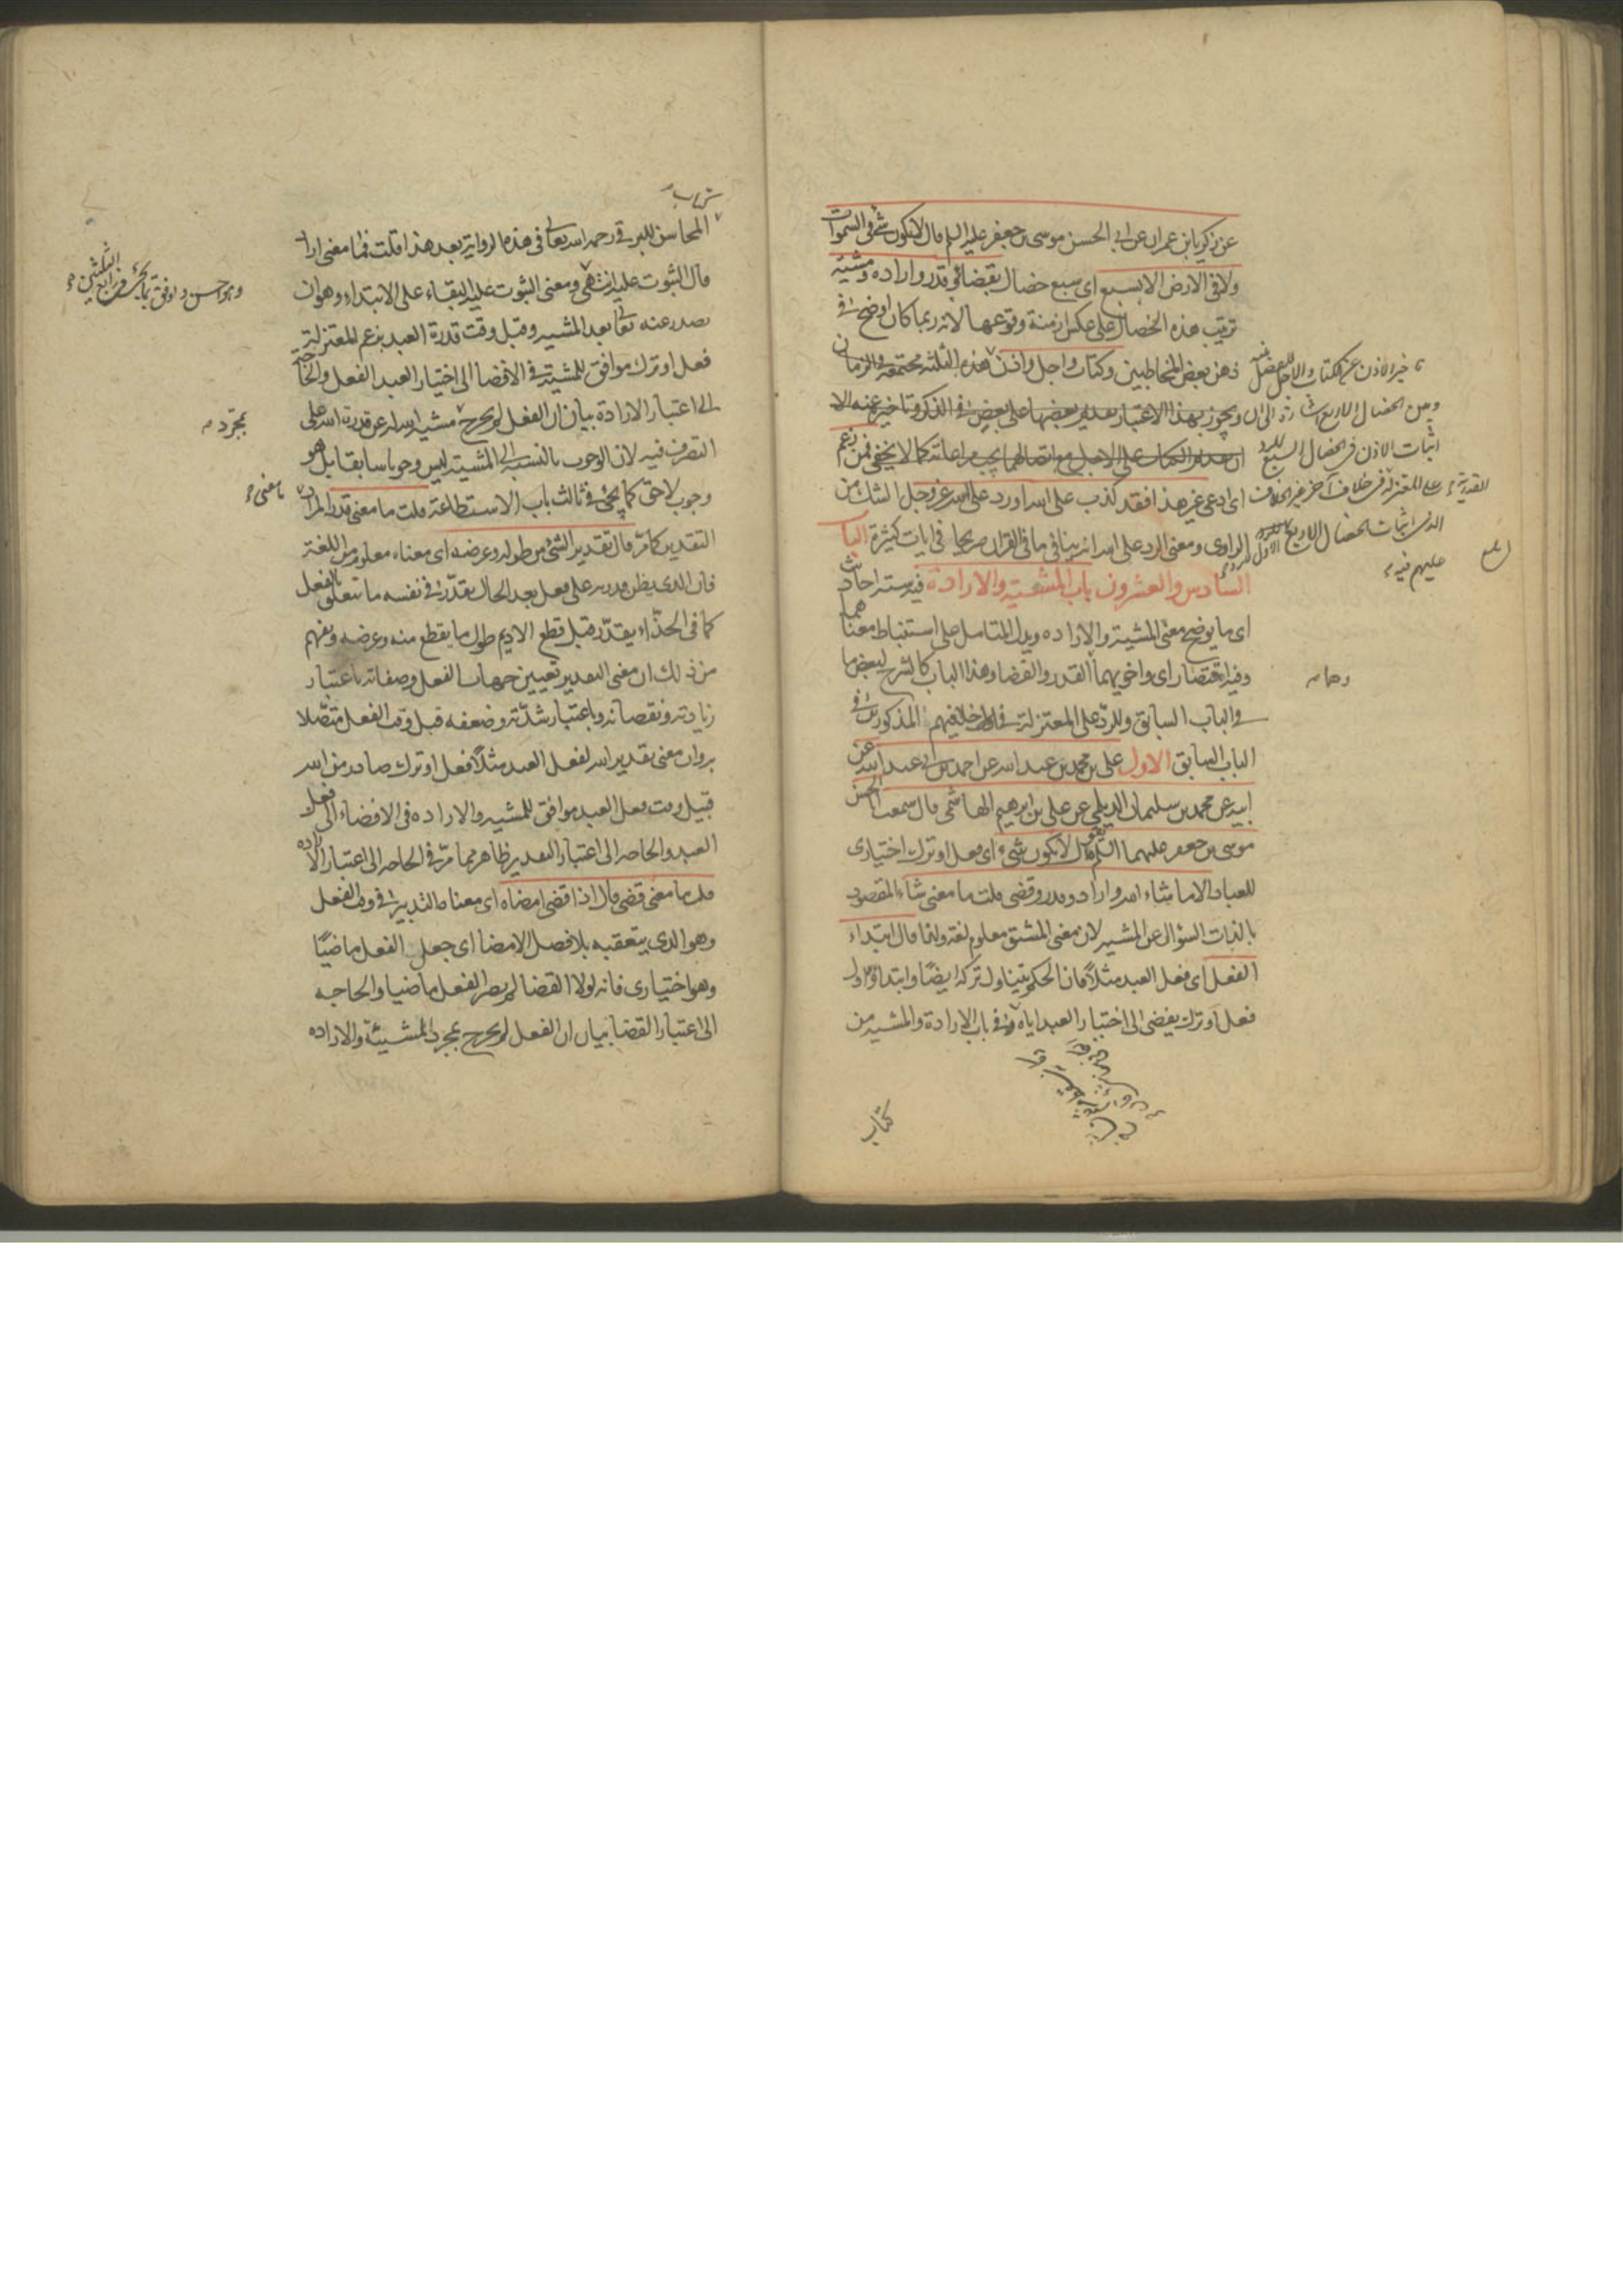 عن زكريا بن عمران عن ابى الحسن موسى بن جعفر عليه السلم قال لا يكون شئ فى السموات
ولا فى الارض الا بسبع اى سبع خصال بقضاء وقدر وارادة ومشية
ترتيب هذه الخصال على عكس ازمنة وقوعها لانه ربما كان اوضح فى
ذهن بعض المخاطبين وكتاب واجل واذن هذه الثلثة مجتمعة فى الزمان
ويجوز بهذا الاعتبار تقديم بعضها على بعض فى الذكر وتاخيره عنه الا
ان تقديم الكتاب على الاجل مع اتصالهما يجب مراعاته كما لا يخفى فمن زعم
اى ادعى غير هذا فقد كذب على الله او رد على الله عز وجل الشك من
الراوى ومعنى الرد على الله انه ينافى ما فى القران صريحا فى ايات كثيرة الباب
السادس والعشرون باب المشية والارادة فيه ستة احاديث
اى ما يوضح معنى المشية والارادة ويدل المتامل على استنباط معناهما
وفيه اختصار اى واخويهما القدر والقضا وهذا الباب كالشرح لبعض ما
فى الباب السابق وللرد على المعتزلة فى خلافيهم المذكورين فى
الباب السابق الاول على بن محمد بن عبد الله عن احمد بن ابى عبد الله عن
ابيه عن محمد بن سليمان الديلمى عن على بن ابرهيم الهاشمى قال سمعت ابا الحسن
موسى بن جعفر عليهما السلم يقول لا يكون شئ اى فعل او ترك اختيارى
للعباد الا ما شاء الله واراد وقدر وقضى قلت ما معنى شاء المقصود
بالذات السؤال عن المشية لان معنى المشتق معلوم لغة وانما قال ابتداء
الفعل اى فعل العبد مثلا فان الحكم يتناول تركه ايضا وابتداؤه اول
فعل او ترك يفضى الى اختيار العبد اياه وفى باب الارادة والمشية من
كتاب
تاخير الاذن عن الكتاب والاجل
وهامه
عليهم فيه
كتاب
المحاسن للبرقى رحمه الله تعالى فى هذه الرواية بعد هذا قلت فما معنى اراد
قال الثبوت عليه انتهى ومعنى الثبوت عليه البقاء على الابتداء وهو ان
يصدر عنه تعالى بعد المشية وقبل وقت قدرة العبد بزعم المعتزلة
فعل او ترك موافق للمشية فى الافضا الى اختيار العبد الفعل والحاجة
الى اعتبار الارادة بيان ان الفعل لم يخرج مشية الله له عن قدرة الله على
التصرف فيه لان الوجوب بالنسبة الى المشية ليس وجوبا سابقا بل هو
وجوب لاحق كما يجئ فى ثالث باب الاستطاعة قلت ما معنى قدر المراد
التقدير كما مر قال تقدير الشئ من طوله وعرضه اى معناه معلوم من اللغة
فان الذى يظن قدرته على فعل بعد الحال يقدر فى نفسه ما يتعلق بالفعل
كما فى الحذاء يقدر قبل قطع الاديم طول ما يقطع منه وعرضه ويفهم
من ذلك ان معنى التقدير تعيين جهات الفعل وصفاته باعتبار
زيادته ونقصانه وباعتبار شدته وضعفه قبل وقت الفعل متصلا
به وان معنى تقدير الله لفعل العبد مثلا فعل او ترك صادر من الله
قبيل وقت فعل العبد موافق للمشية والارادة فى الافضاء الى فعل
العبد والحاجة الى اعتبار التقدير ظاهر مما مر فى الحاجة الى اعتبار الارادة
قلت ما معنى قضى قال اذا قضى امضاه اى معناه التدبير فى وقت الفعل
وهو الذى يتعقبه بلا فصل الامضا اى جعل الفعل ماضيا
وهو اختيارى فانه لولا القضا لم يصر الفعل ماضيا والحاجة
الى اعتبار القضا بيان ان الفعل لم يخرج بمجرد المشية والارادة
وهو حسن واوفق بما يجئ
بمجرد
ما معنى